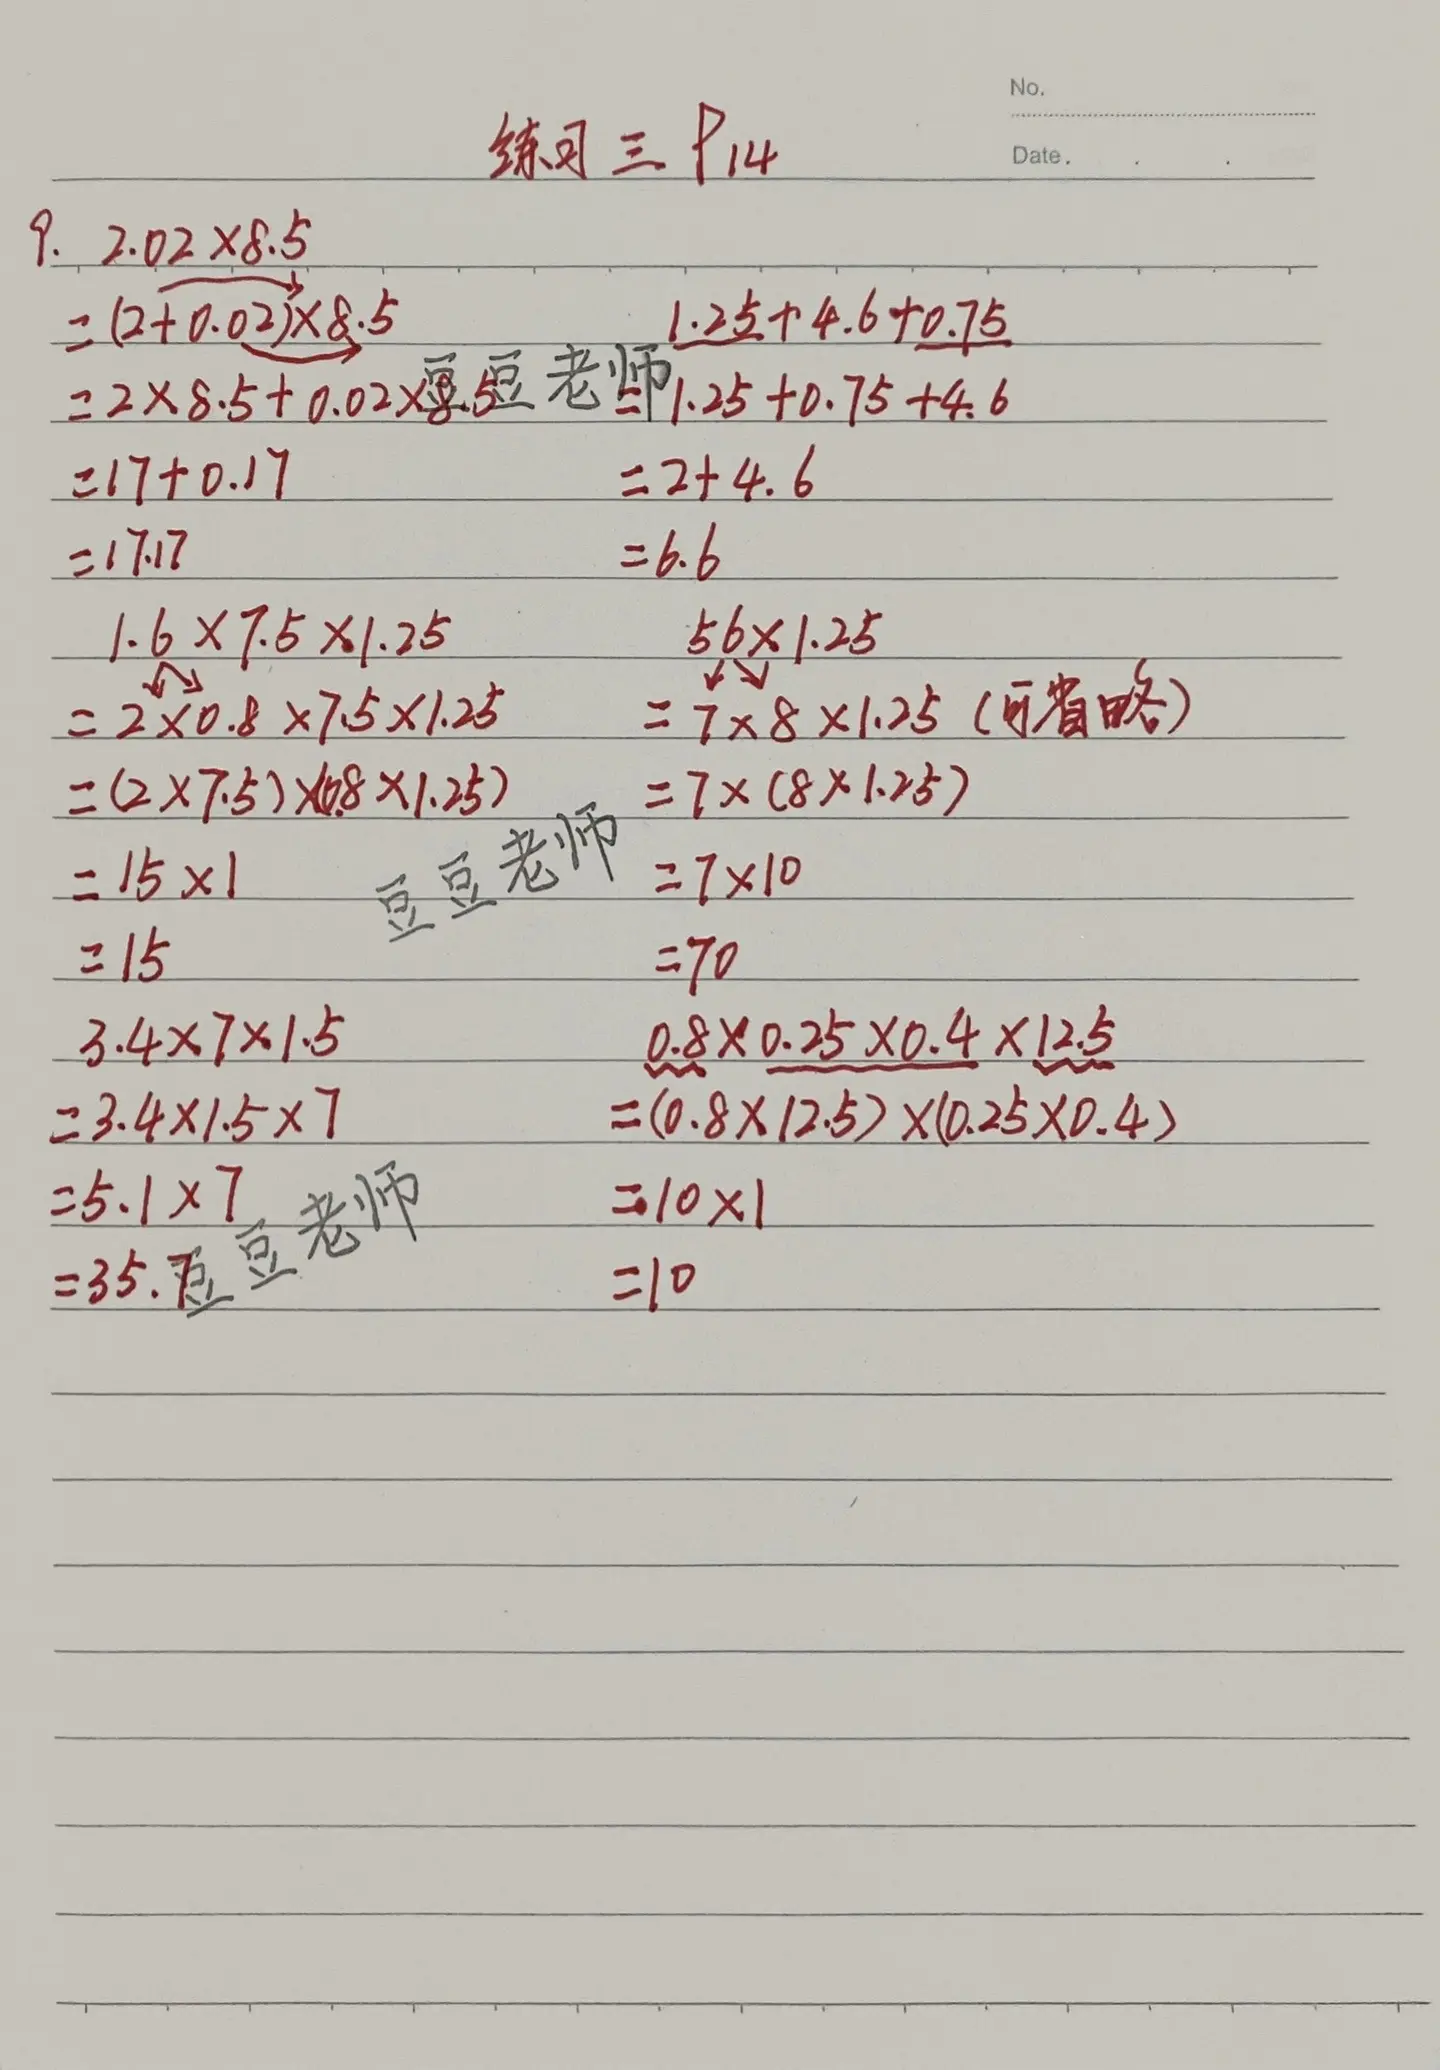 No.
Date.
练习三 P14
9. 2.02×8.5
=(2+0.02)×8.5
=2×8.5+0.02×8.5
=17+0.17
=17.17
1.25+4.6+0.75
=1.25+0.75+4.6
=2+4.6
=6.6
豆豆老师
1.6×7.5×1.25
=2×0.8×7.5×1.25
=(2×7.5)×(0.8×1.25)
=15×1
=15
56×1.25
=7×8×1.25 (可省略)
=7×(8×1.25)
=7×10
=70
豆豆老师
3.4×7×1.5
=3.4×1.5×7
=5.1×7
=35.7
豆豆老师
0.8×0.25×0.4×12.5
=(0.8×12.5)×(0.25×0.4)
=10×1
=10